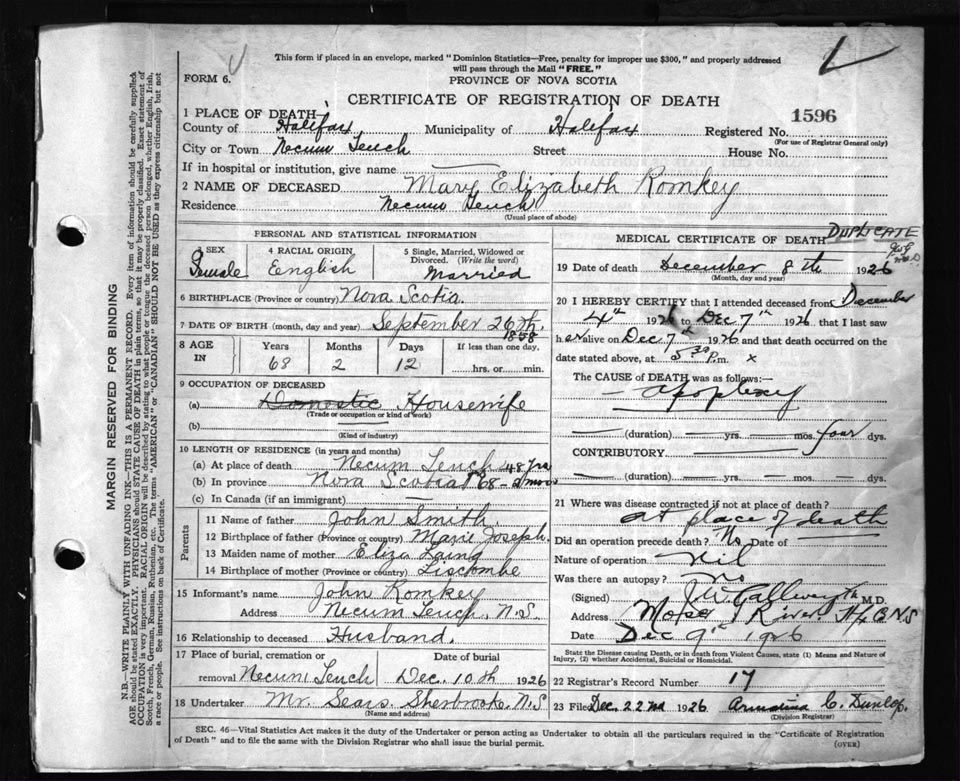 This form if placed in an envelope, marked "Dominion Statistics—Free, penalty for improper use $300," and properly addressed
will pass through the Mail "FREE."
FORM 6.
PROVINCE OF NOVA SCOTIA
CERTIFICATE OF REGISTRATION OF DEATH
1 PLACE OF DEATH—
1596
County of Halifax Municipality of Halifax Registered No.
(For use of Registrar General only)
City or Town Necum Teuch Street House No.
If in hospital or institution, give name
2 NAME OF DECEASED Mary Elizabeth Romkey
Residence Necum Teuch
(Usual place of abode)
PERSONAL AND STATISTICAL INFORMATION
3 SEX Female
4 RACIAL ORIGIN English
5 Single, Married, Widowed or Divorced. (Write the word) Married
6 BIRTHPLACE (Province or country) Nova Scotia.
7 DATE OF BIRTH (month, day and year) September 26th. 1858
8 AGE IN Years Months Days If less than one day.
68 2 12 hrs. or min.
9 OCCUPATION OF DECEASED
(a) Domestic Housewife
(Trade or occupation or kind of work)
(b)
(Kind of industry)
10 LENGTH OF RESIDENCE (in years and months)
(a) At place of death Necum Teuch 48 yrs
(b) In province Nova Scotia 68 - 2 mos
(c) In Canada (if an immigrant)
Parents
11 Name of father John Smith.
12 Birthplace of father (Province or country) Marie Joseph.
13 Maiden name of mother Eliza Laing
14 Birthplace of mother (Province or country) Liscombe
15 Informant's name John Romkey
Address Necum Teuch, N.S.
16 Relationship to deceased Husband.
17 Place of burial, cremation or Date of burial
removal Necum Teuch Dec. 10th 1926
18 Undertaker Mr. Sears. Sherbrooke, N.S.
(Name and address)
MEDICAL CERTIFICATE OF DEATH
DUPLICATE
19 Date of death December 8th 1926
(Month, day and year)
20 I HEREBY CERTIFY that I attended deceased from December
4th 1926 to Dec 7th 1926 that I last saw
her alive on Dec 7th 1926 and that death occurred on the
date stated above, at 5 30 P.m. x
The CAUSE OF DEATH was as follows:—
Apoplexy
(duration) yrs. mos. four dys.
CONTRIBUTORY
(duration) yrs. mos. dys.
21 Where was disease contracted if not at place of death?
At place of death
Did an operation precede death? No Date of
Nature of operation nil
Was there an autopsy? No
(Signed) M.D.
Address Moser River Hfx Co NS
Date Dec 9th 1926
State the Disease causing Death, or in death from Violent Causes, state (1) Means and Nature of
Injury, (2) whether Accidental, Suicidal or Homicidal.
22 Registrar's Record Number 17
23 Filed Dec. 22nd 1926 C. Dunlop.
(Division Registrar)
SEC. 46—Vital Statistics Act makes it the duty of the Undertaker or person acting as Undertaker to obtain all the particulars required in the "Certificate of Registration
of Death" and to file the same with the Division Registrar who shall issue the burial permit.
(OVER)
MARGIN RESERVED FOR BINDING
N.B.—WRITE PLAINLY WITH UNFADING INK—THIS IS A PERMANENT RECORD. Every item of information should be carefully supplied.
AGE should be stated EXACTLY. PHYSICIANS should STATE CAUSE OF DEATH in plain terms, so that it may be properly classified. Exact statement of
OCCUPATION is very important. RACIAL ORIGIN will be described by stating to what people or tongue the deceased person belonged, whether English, Irish,
Scotch, French, German, Russian, Ruthenian, etc. The terms "AMERICAN" or "CANADIAN" SHOULD NOT BE USED as they express citizenship but not
a race or people. See instructions on back of Certificate.